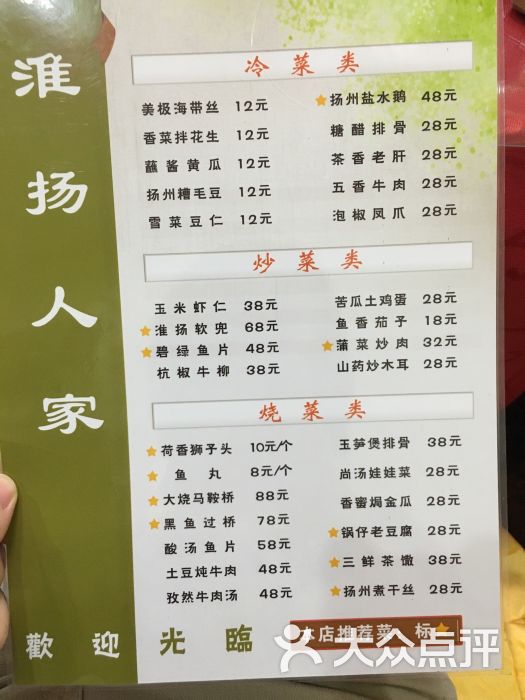 淮扬人家
冷菜类
美极海带丝 12元
香菜拌花生 12元
蘸酱黄瓜 12元
扬州糟毛豆 12元
雪菜豆仁 12元
★扬州盐水鹅 48元
糖醋排骨 28元
茶香老肝 28元
五香牛肉 28元
泡椒凤爪 28元
炒菜类
玉米虾仁 38元
★淮扬软兜 68元
★碧绿鱼片 48元
杭椒牛柳 38元
苦瓜土鸡蛋 28元
鱼香茄子 18元
★蒲菜炒肉 32元
山药炒木耳 28元
烧菜类
★荷香狮子头 10元/个
★鱼丸 8元/个
★大烧马鞍桥 88元
★黑鱼过桥 78元
酸汤鱼片 58元
土豆炖牛肉 48元
孜然牛肉汤 48元
玉笋煲排骨 38元
尚汤娃娃菜 28元
香蜜焗金瓜 28元
★锅仔老豆腐 28元
★三鲜茶馓 38元
★扬州煮干丝 28元
歡迎光臨
本店推荐菜 标★
大众点评